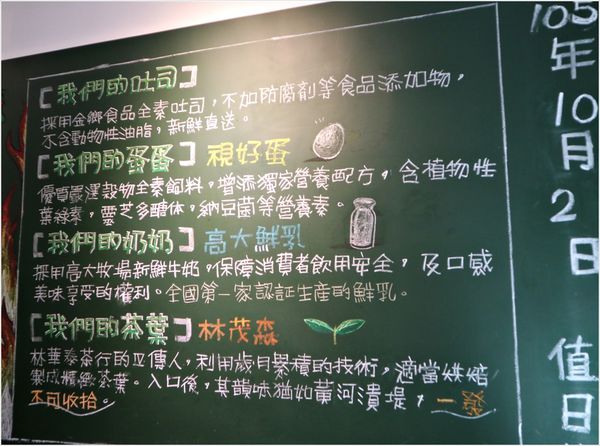 【我們的吐司】
採用金鄉食品全素吐司，不加防腐劑等食品添加物，
不含動物性油脂，新鮮直送。
【我們的蛋蛋】視好蛋
優質嚴選穀物全素飼料，增添獨家營養配方，含植物性
葉綠素，靈芝多醣体，納豆菌等營養素。
【我們的奶奶】高大鮮乳
採用高大牧場新鮮牛奶。保障消費者飲用安全，及口感
美味享受的權利。全國第一家認証生產的鮮乳。
【我們的茶葉】林茂森
林華泰茶行的正傳人，利用歲月累積的技術，適當烘焙
製成精緻茶葉。入口後，其韻味猶如黃河潰堤，一發
不可收拾。
105年10月2日 值日